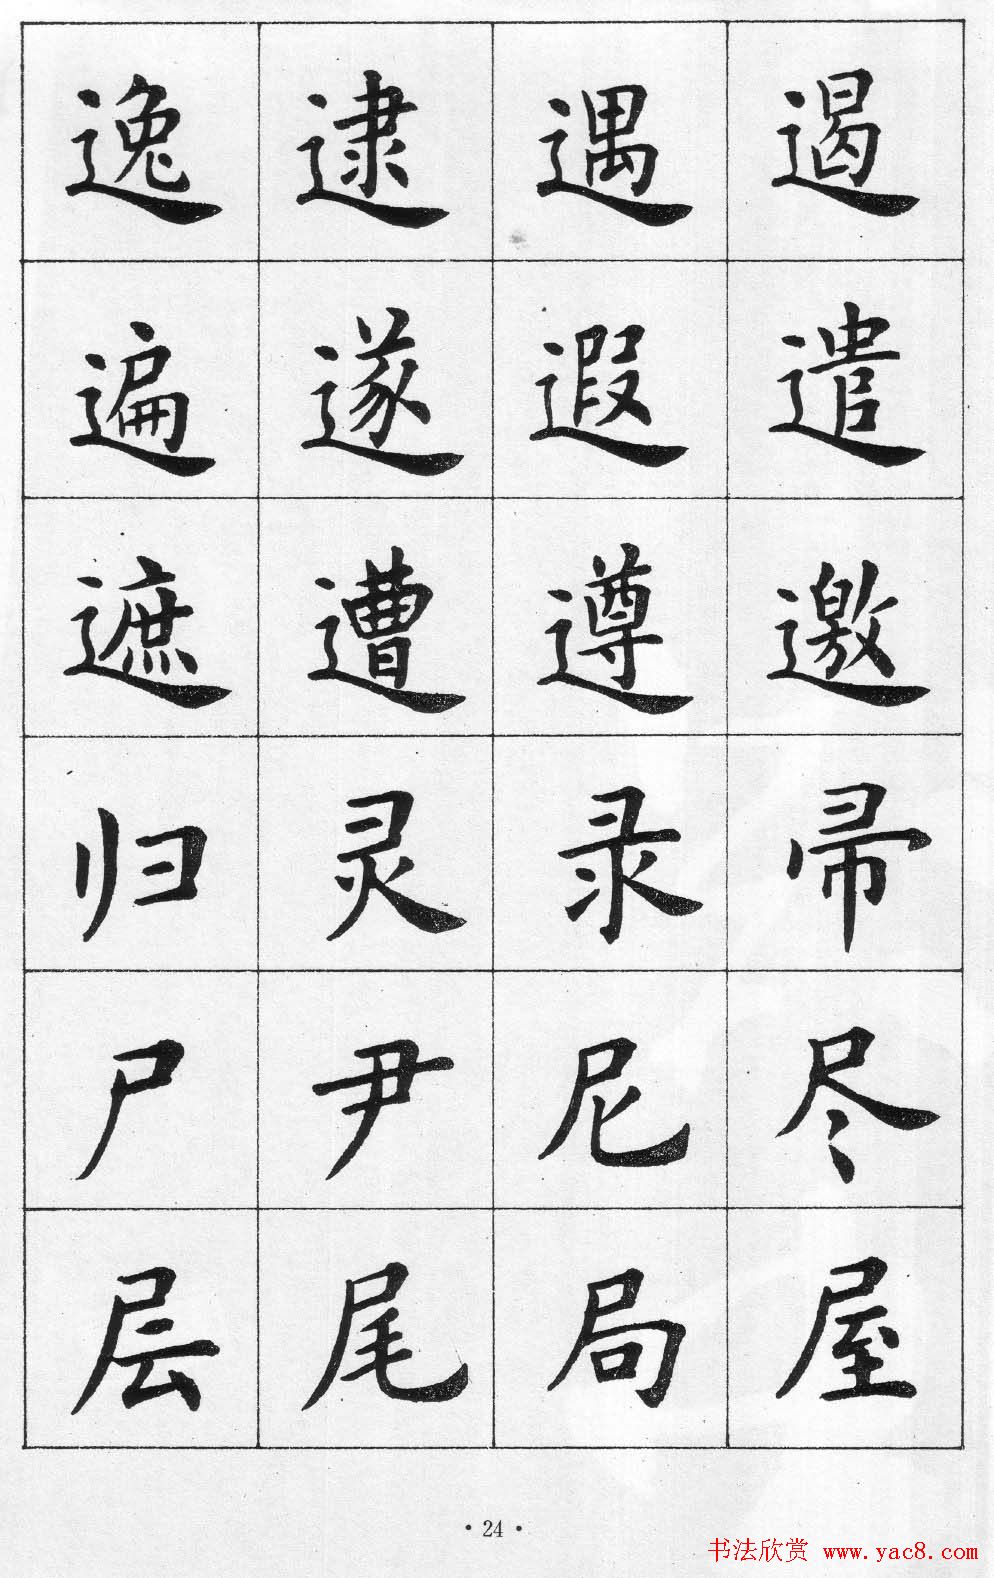 逸逮遇遏
遍遂遐遣
遮遭遵邀
归灵录帚
尸尹尼尽
层尾局屋
·24·
书法欣赏 www.yac8.com